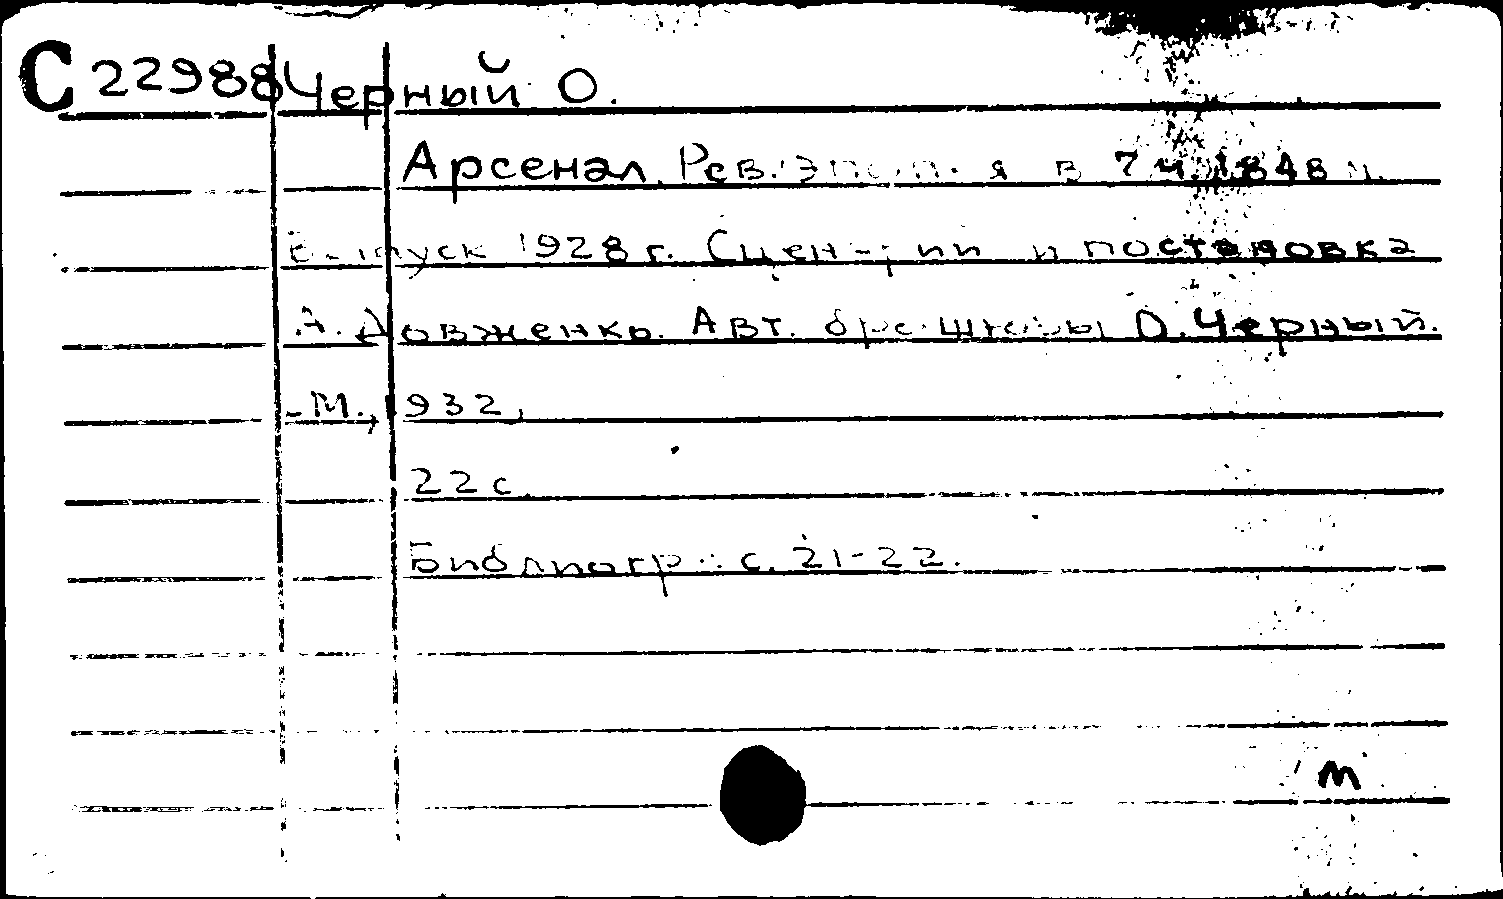 С 22988 Черный О.
Арсенал. Рев. эпопея в 7 ч. 1848 м.
Выпуск 1928 г. Сценарий и постановка
А. Довженко. Авт. брошюры О. Черный.
- М., 1932,
22 с.
Библиогр.: с. 21-22.
т